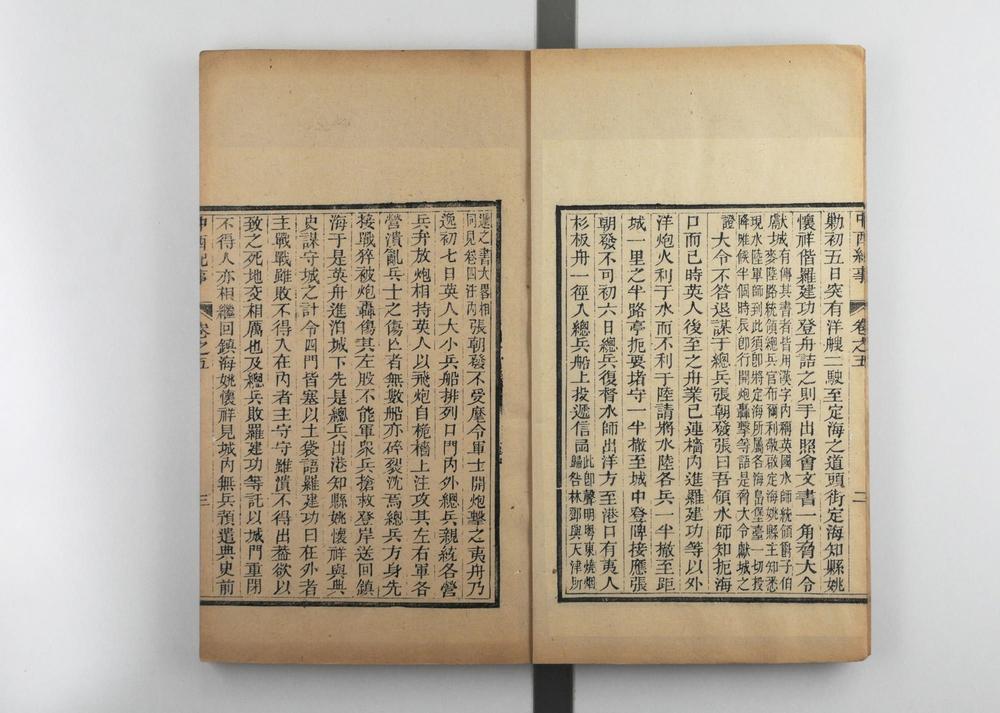 中西紀事 卷之五 二
勦初五日突有洋艘二駛至定海之道頭街定海知縣姚
懷祥偕羅建功登舟詰之則手出照會文書一角脅大令
獻城有傳其書者皆用漢字內稱英國水師統領爵子伯
麥陸路統領總兵官布爾利敬啟定海姚縣主知悉
現水陸軍師到此須即將定海所屬各海島堡臺一切投
降唯候半個時辰即行開炮轟擊等語是脅大令獻城之
證大令不答退謀于總兵張朝發張曰吾領水師知扼海
口而已時英人後至之舟業已連檣內進羅建功等以外
洋炮火利于水而不利于陸請將水陸各兵一半撤至距
城一里之半路亭扼要堵守一半撤至城中登陴接應張
朝發不可初六日總兵復督水師出洋方至港口有夷人
杉板舟一徑入總兵船上投遞信函
此即聲明粵東燒烟
歸咎林鄧與天津所
遞之書大畧相
同見卷四注內
張朝發不受麾令軍士開炮擊之夷舟乃
逸初七日英人大小兵船排列口門內外總兵親統各營
兵弁放炮相持英人以飛炮自桅檣上注攻其左右軍各
營潰亂兵士之傷亡者無數船亦碎裂沈焉總兵方身先
接戰猝被炮轟傷其左股不能軍衆兵搶救登岸送回鎮
海于是英舟進泊城下先是總兵出港知縣姚懷祥與典
史謀守城之計令四門皆塞以土袋語羅建功曰在外者
主戰戰雖敗不得入在內者主守守雖潰不得出葢欲以
致之死地交相厲也及總兵敗羅建功等託以城門重閉
不得人亦相繼回鎮海姚懷祥見城內無兵預遣典史前
中西紀事 卷之五 三